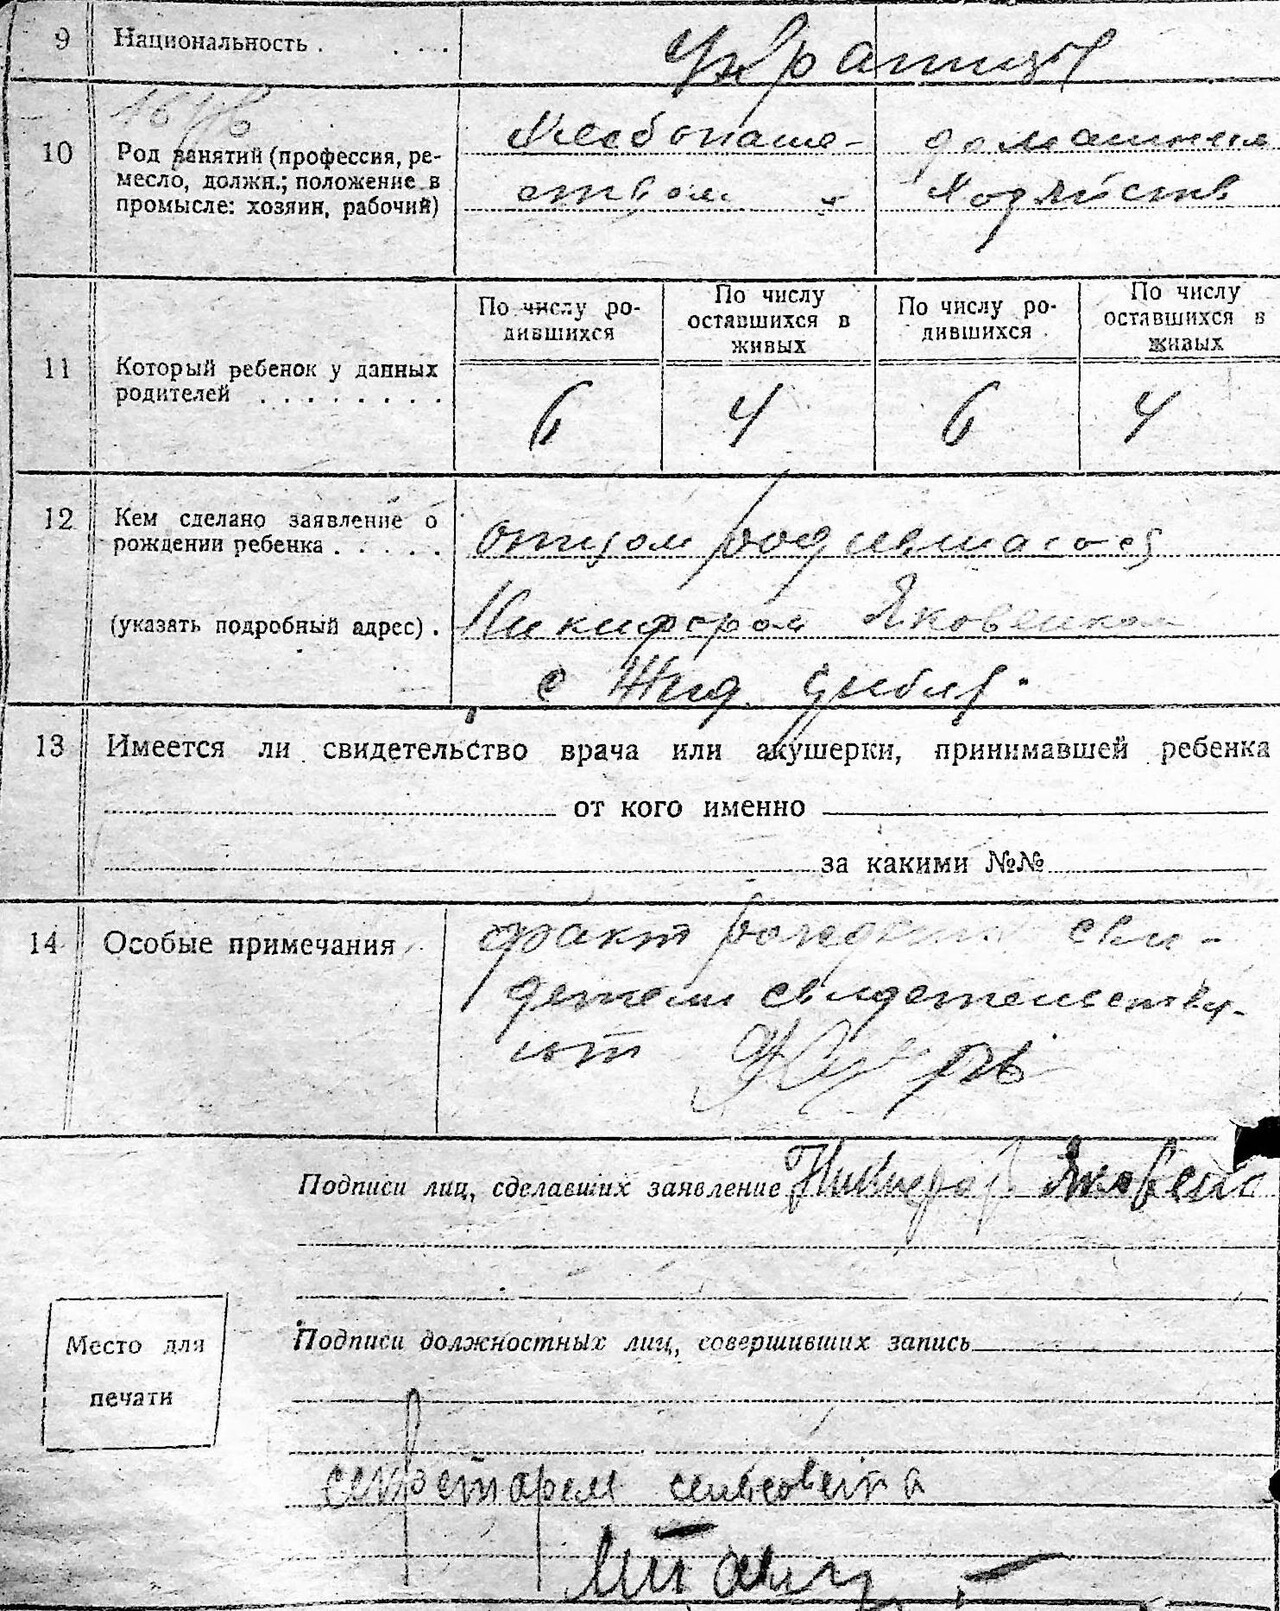 9 Национальность . . . . . Украинцы
10 Род занятий (профессия, ре-
месло, должн.; положение в
промысле: хозяин, рабочий)
Хлебопаше- домашнем
ством - хозяйств
11 Который ребенок у данных
родителей . . . . . . . .
По числу ро-
дившихся
По числу
оставшихся в
живых
По числу ро-
дившихся
По числу
оставшихся в
живых
6 4 6 4
12 Кем сделано заявление о
рождении ребенка . . . . .
(указать подробный адрес) .
отцом родившагося
Никифором Яковенком
с
13 Имеется ли свидетельство врача или акушерки, принимавшей ребенка
от кого именно
за какими №№
14 Особые примечания
факт рождения сви-
детели свидетельству-
ют
Подписи лиц, сделавших заявление Никифор Яковенко
Место для
печати
Подписи должностных лиц, совершивших запись
секретарем сельсовета